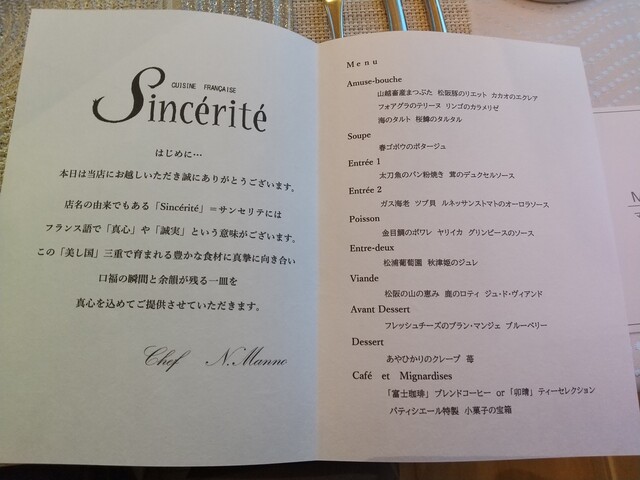 CUISINE FRANÇAISE
Sincérité
はじめに…
本日は当店にお越しいただき誠にありがとうございます。
店名の由来でもある「Sincérité」＝サンセリテには
フランス語で「真心」や「誠実」という意味がございます。
この「美し国」三重で育まれる豊かな食材に真摯に向き合い
口福の瞬間と余韻が残る一皿を
真心を込めてご提供させていただきます。
Chef N.Manno
Menu
Amuse-bouche
山越畜産まつぶた 松阪豚のリエット カカオのエクレア
フォアグラのテリーヌ リンゴのカラメリゼ
海のタルト 桜鱒のタルタル
Soupe
春ゴボウのポタージュ
Entrée 1
太刀魚のパン粉焼き 茸のデュクセルソース
Entrée 2
ガス海老 ツブ貝 ルネッサンストマトのオーロラソース
Poisson
金目鯛のポワレ ヤリイカ グリンピースのソース
Entre-deux
松浦葡萄園 秋津姫のジュレ
Viande
松阪の山の恵み 鹿のロティ ジュ・ド・ヴィアンド
Avant Dessert
フレッシュチーズのブラン・マンジェ ブルーベリー
Dessert
あやひかりのクレープ 苺
Café et Mignardises
「富士珈琲」ブレンドコーヒー or「卯晴」ティーセレクション
パティシエール特製 小菓子の宝箱